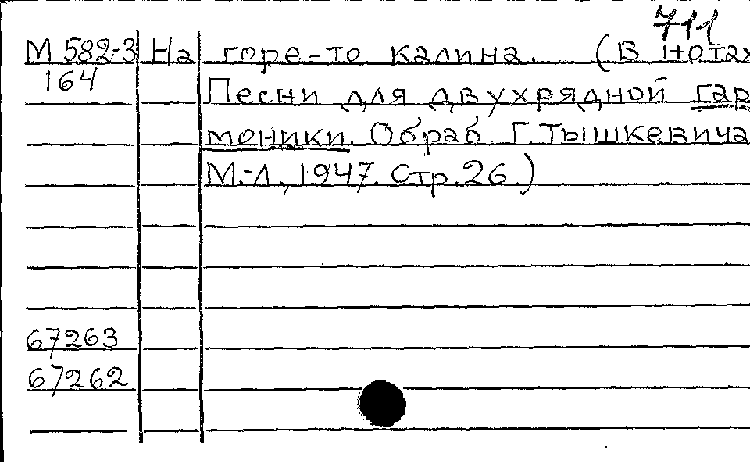 711
М 582-3 На горе-то калина. (В нотах
164 Песни для двухрядной гар
моники. Обраб. Г. Тышкевича
М.-Л., 1947. Стр. 26.)
67263
67262